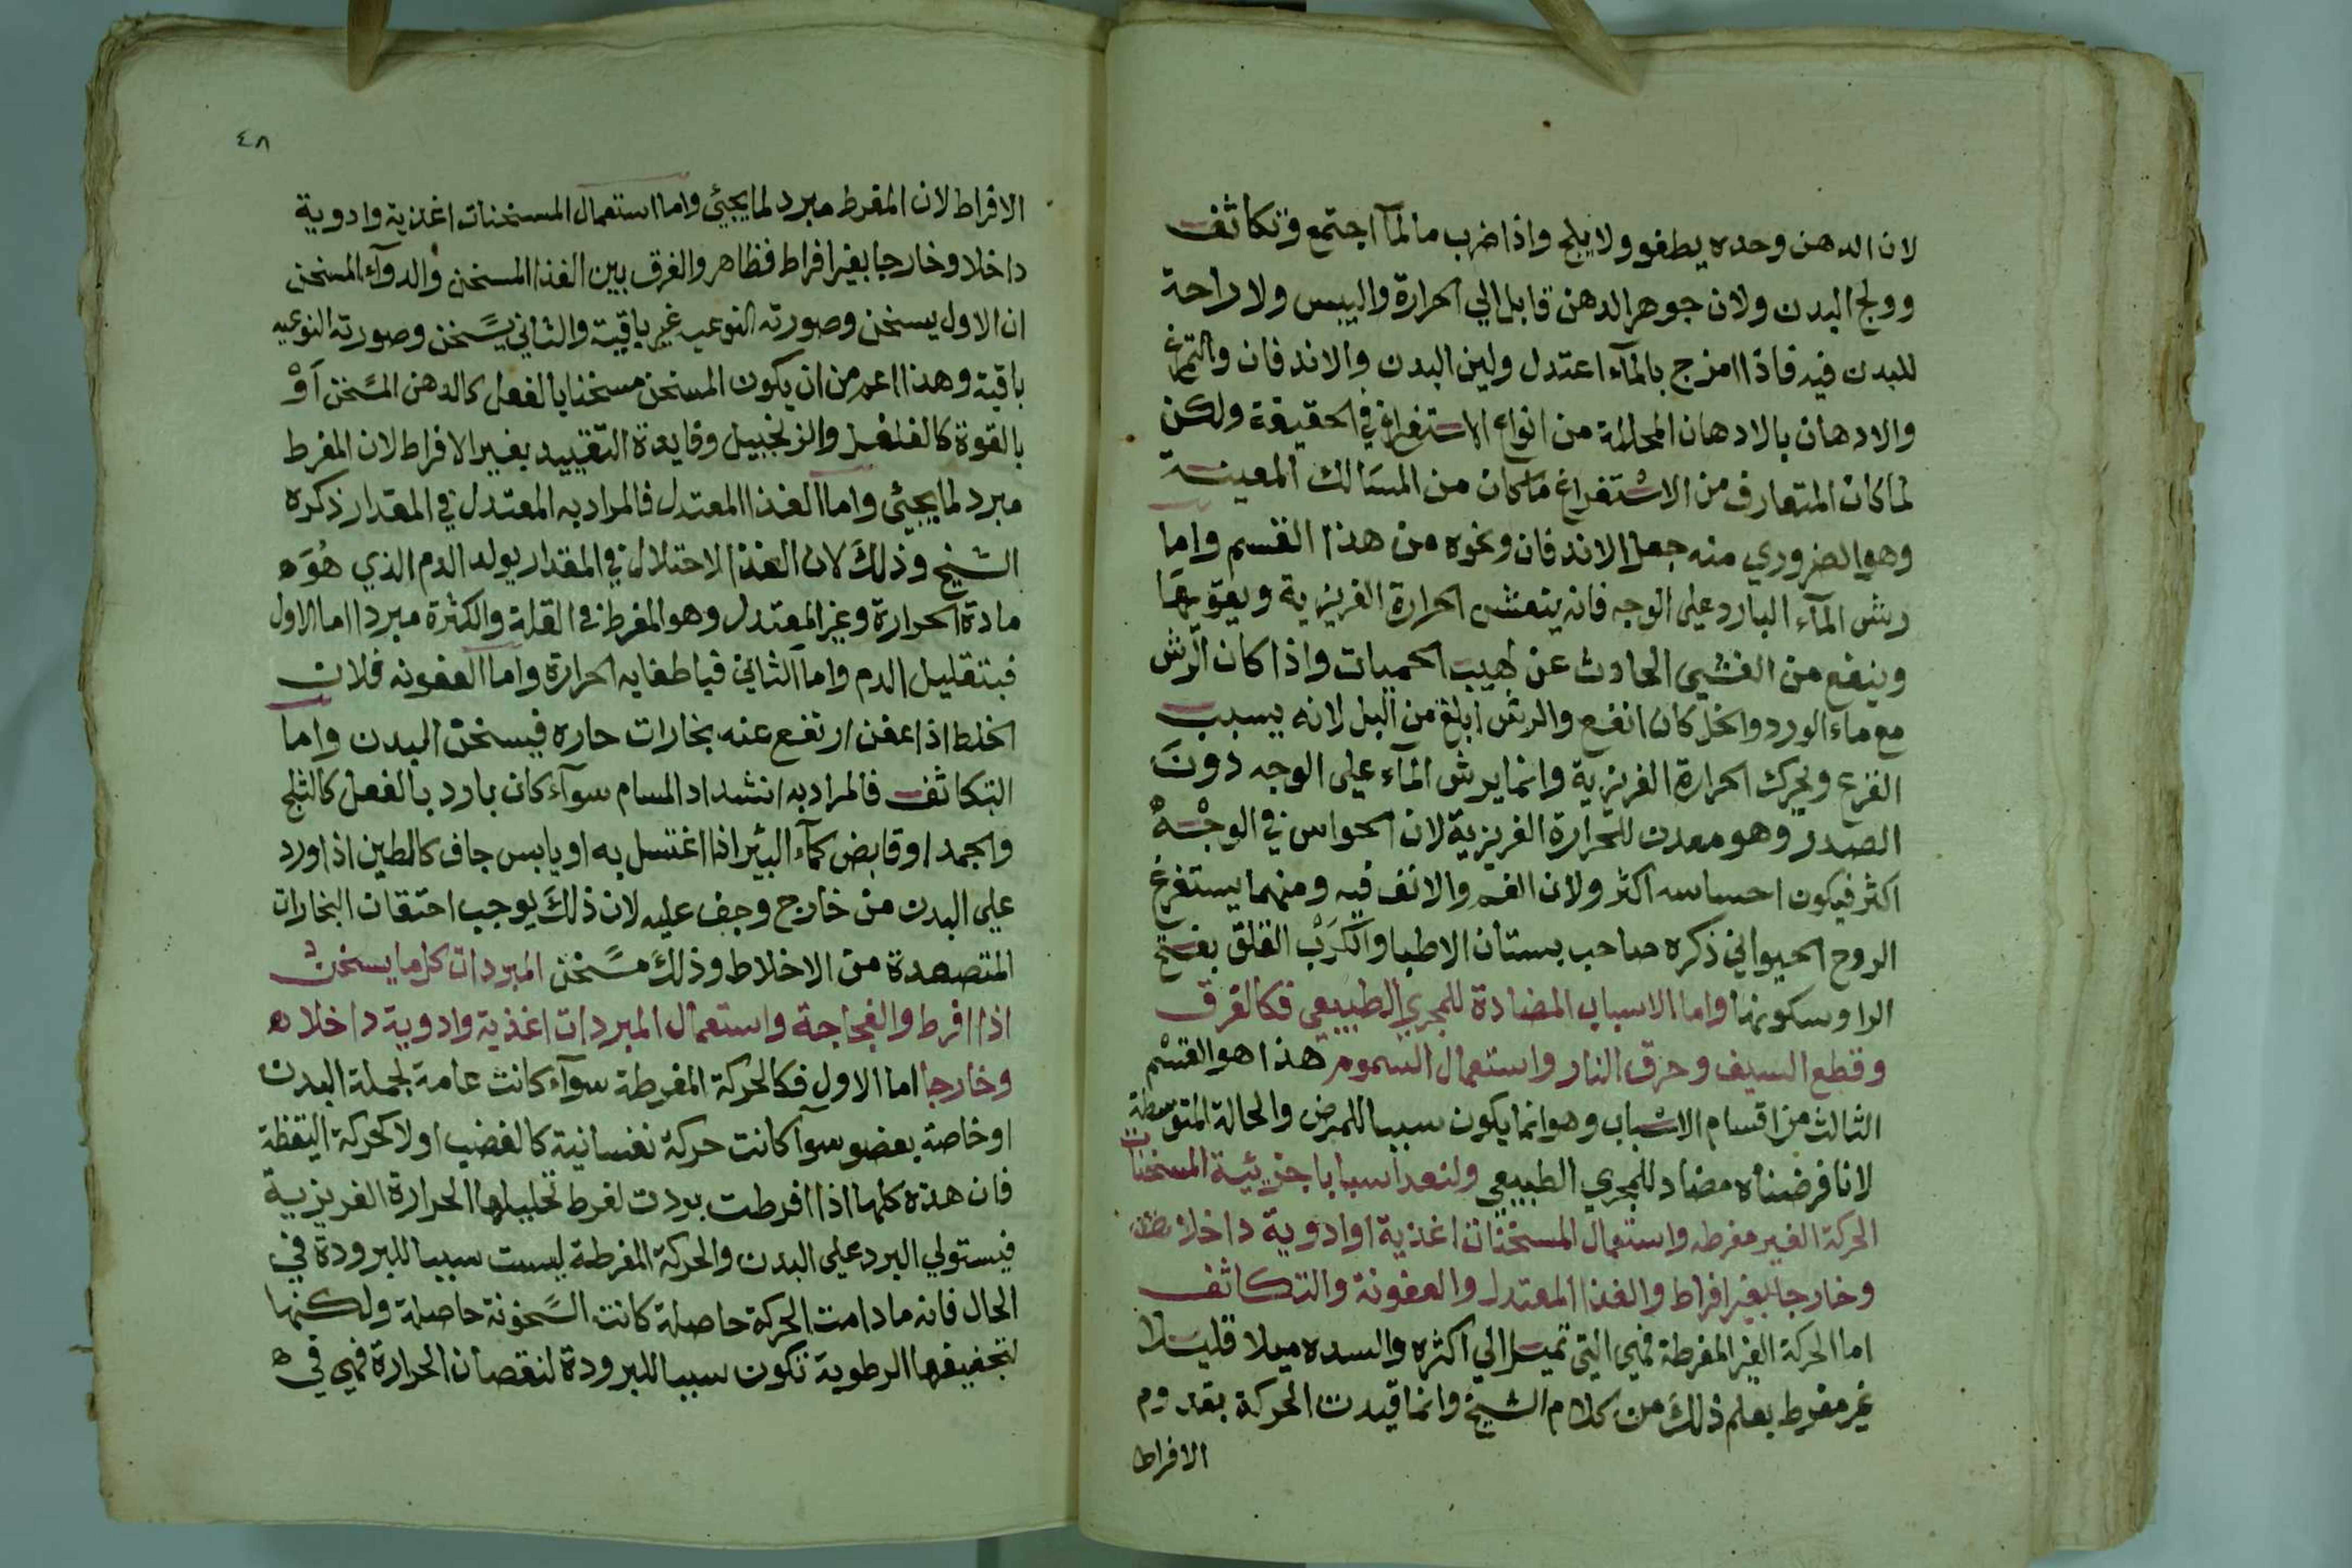 لان الدهن وحده يطفو ولا يلج واذا ضرب مالمآ اجتمع وتكاثف
وولج البدن ولان جوهر الدهن قابل الي الحرارة واليبس ولا راحة
للبدن فيه فاذا امزج بالمآء اعتدل ولين البدن والاندفان والتمرغ
والادهان بالادهان المحللة من انواع الاستفراغ في الحقيقة ولكن
لما كان المتعارف من الاستفراغ ماكان من المسالك المعينة
وهو الضروري منه جعل الاندفان ونحوه من هذا القسم واما
رش المآء البارد علي الوجه فانه ينعش الحرارة الغريزية ويقويها
وينفع من الغشي الحادث عن لهيب الحميات واذا كان الرش
مع ماء الورد والخل كان انفع والرش ابلغ من البل لانه يسبب
الفزع ويحرك الحرارة الغريزية وانما يرش المآء علي الوجه دون
الصدر وهو معدن للحرارة الغريزية لان الحواس في الوجه
اكثر فيكون احساسه اكثر ولان الفم والانف فيه ومنهما يستفرغ
الروح الحيواني ذكره صاحب بستان الاطبا والكرب القلق بفتح
الرا وسكونها واما الاسباب المضادة للمجري الطبيعي فكالغرق
وقطع السيف وحرق النار واستعمال السموم هذا هو القسم
الثالث من اقسام الاسباب وهو انما يكون سببا للمرض والحالة المتوسطة
لانا فرضناه مضاد للمجري الطبيعي ولنعد اسبابا جزيئة المسخنات
الحركة الغير مفرطه واستعمال المسخنات اغذية اوادوية داخلا
وخارجا بغير افراط والغذا المعتدل والعفونة والتكاثف
اما الحركة الغير المفرطة فهي التي تميل الي اكثره والسده ميلا قليلا
غير مفرط يعلم ذلك من كلام الشيخ وانما قيدت الحركة بعدوم
الافراط
٤٨
الافراط لان المفرط مبرد لما يجيئ واما استعمال المسخنات اغذية وادوية
داخلا وخارجا بغير افراط فظاهر والفرق بين الغذا المسخن والدوآء المسخن
ان الاول يسخن وصورته النوعيه غير باقية والثاني يسخن وصورته النوعيه
باقية وهذا اعم من ان يكون المسخن مسخنا بالفعل كالدهن المسخن أو
بالقوة كالفلفل والزنجبيل وفايدة التقييد بغير الافراط لان المفرط
مبرد لما يجيئ واما الغذا المعتدل فالمراد به المعتدل في المقدار ذكره
الشيخ وذلك لان الغذا الاحتلال في المقدار يولد الدم الذي هو
مادة الحرارة وغير المعتدل وهو المفرط في القلة والكثرة مبردا اما الاول
فبتقليل الدم واما الثاني فباطفايه الحرارة واما العفونه فلان
الخلط اذا عفن ارتفع عنه بخارات حاره فيسخن البدن واما
التكاثف فالمراد به انشداد المسام سوآء كان بارد بالفعل كالثلج
والجمد اوقابض كمآء البئر اذا اغتسل به اويابس جاف كالطين اذا ورد
علي البدن من خارج وجف عليه لان ذلك يوجب احتقان البخارات
المتصعدة من الاخلاط وذلك مسخن المبردات كل ما يسخن
اذا افرط والفجاجة واستعمال المبردات اغذية وادوية داخلا
وخارجا اما الاول فكالحركة المفرطة سوآء كانت عامة لجملة البدن
اوخاصة بعضو سوآ كانت حركة نفسانية كالغضب اولا كحركة اليقظة
فان هذه كلها اذا افرطت بردت لفرط تحليلها الحرارة الغريزية
فيستولي البرد علي البدن والحركة المفرطة ليست سببا للبرودة في
الحال فانه مادامت الحركة حاصلة كانت السخونة حاصلة ولكنها
لتجفيفها الرطوبة تكون سببا للبرودة لنقصان الحرارة فهي في